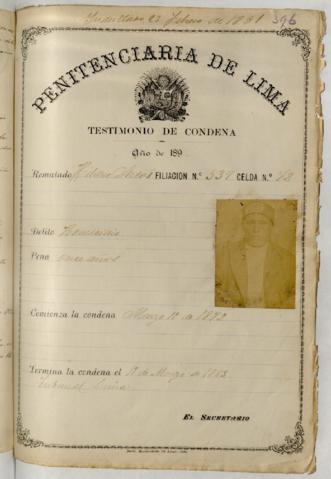 Febrero de 1891 396
PENITENCIARIA DE LIMA
TESTIMONIO DE CONDENA
Año de 189
Rematado FILIACION N.º 339 CELDA N.º
Delito Homicidio
Pena once años
Comienza la condena Marzo 1º de 1892
Termina la condena el de Marzo de
Tribunal Lima
EL SECRETARIO